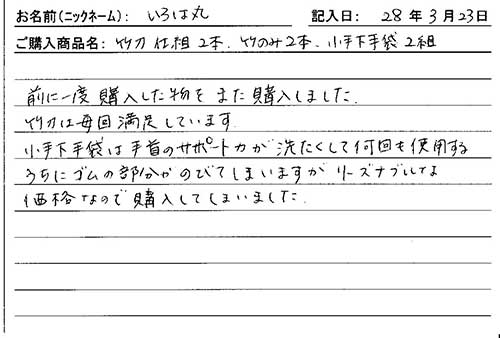 お名前(ニックネーム): いろは丸 記入日: 28年3月23日
ご購入商品名: 竹刀 仕組2本. 竹のみ2本. 小手下手袋2組
前に一度購入した物をまた購入しました.
竹刀は毎回満足しています.
小手下手袋は手首のサポート力が洗たくして何回も使用する
うちにゴムの部分がのびてしまいますがリーズナブルな
価格なので購入してしまいました.